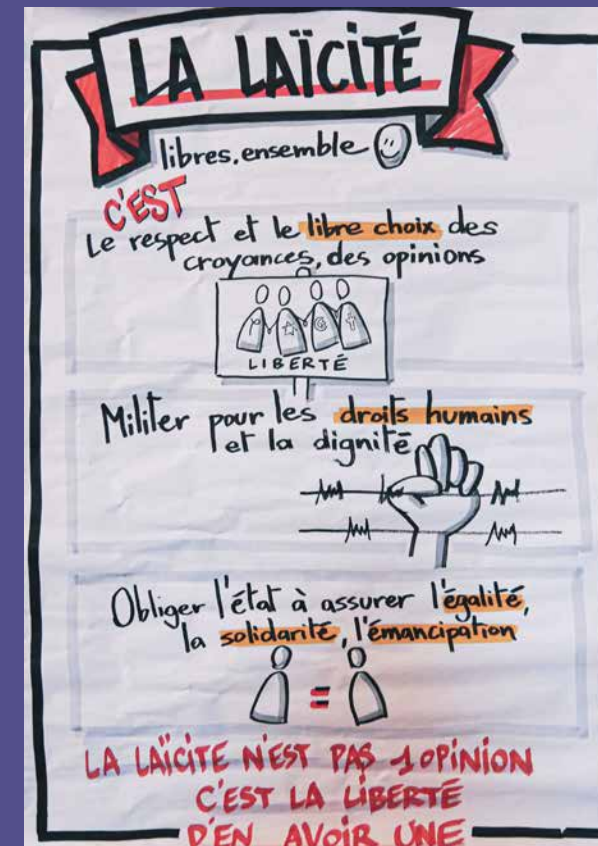 LA LAÏCITÉ
libres.ensemble
C'EST
Le respect et le libre choix des
croyances, des opinions
LIBERTÉ
Militer pour les droits humains
et la dignité
Obliger l'état à assurer l'égalité,
la solidarité, l'émancipation
=
LA LAÏCITE N'EST PAS 1 OPINION
C'EST LA LIBERTÉ
D'EN AVOIR UNE